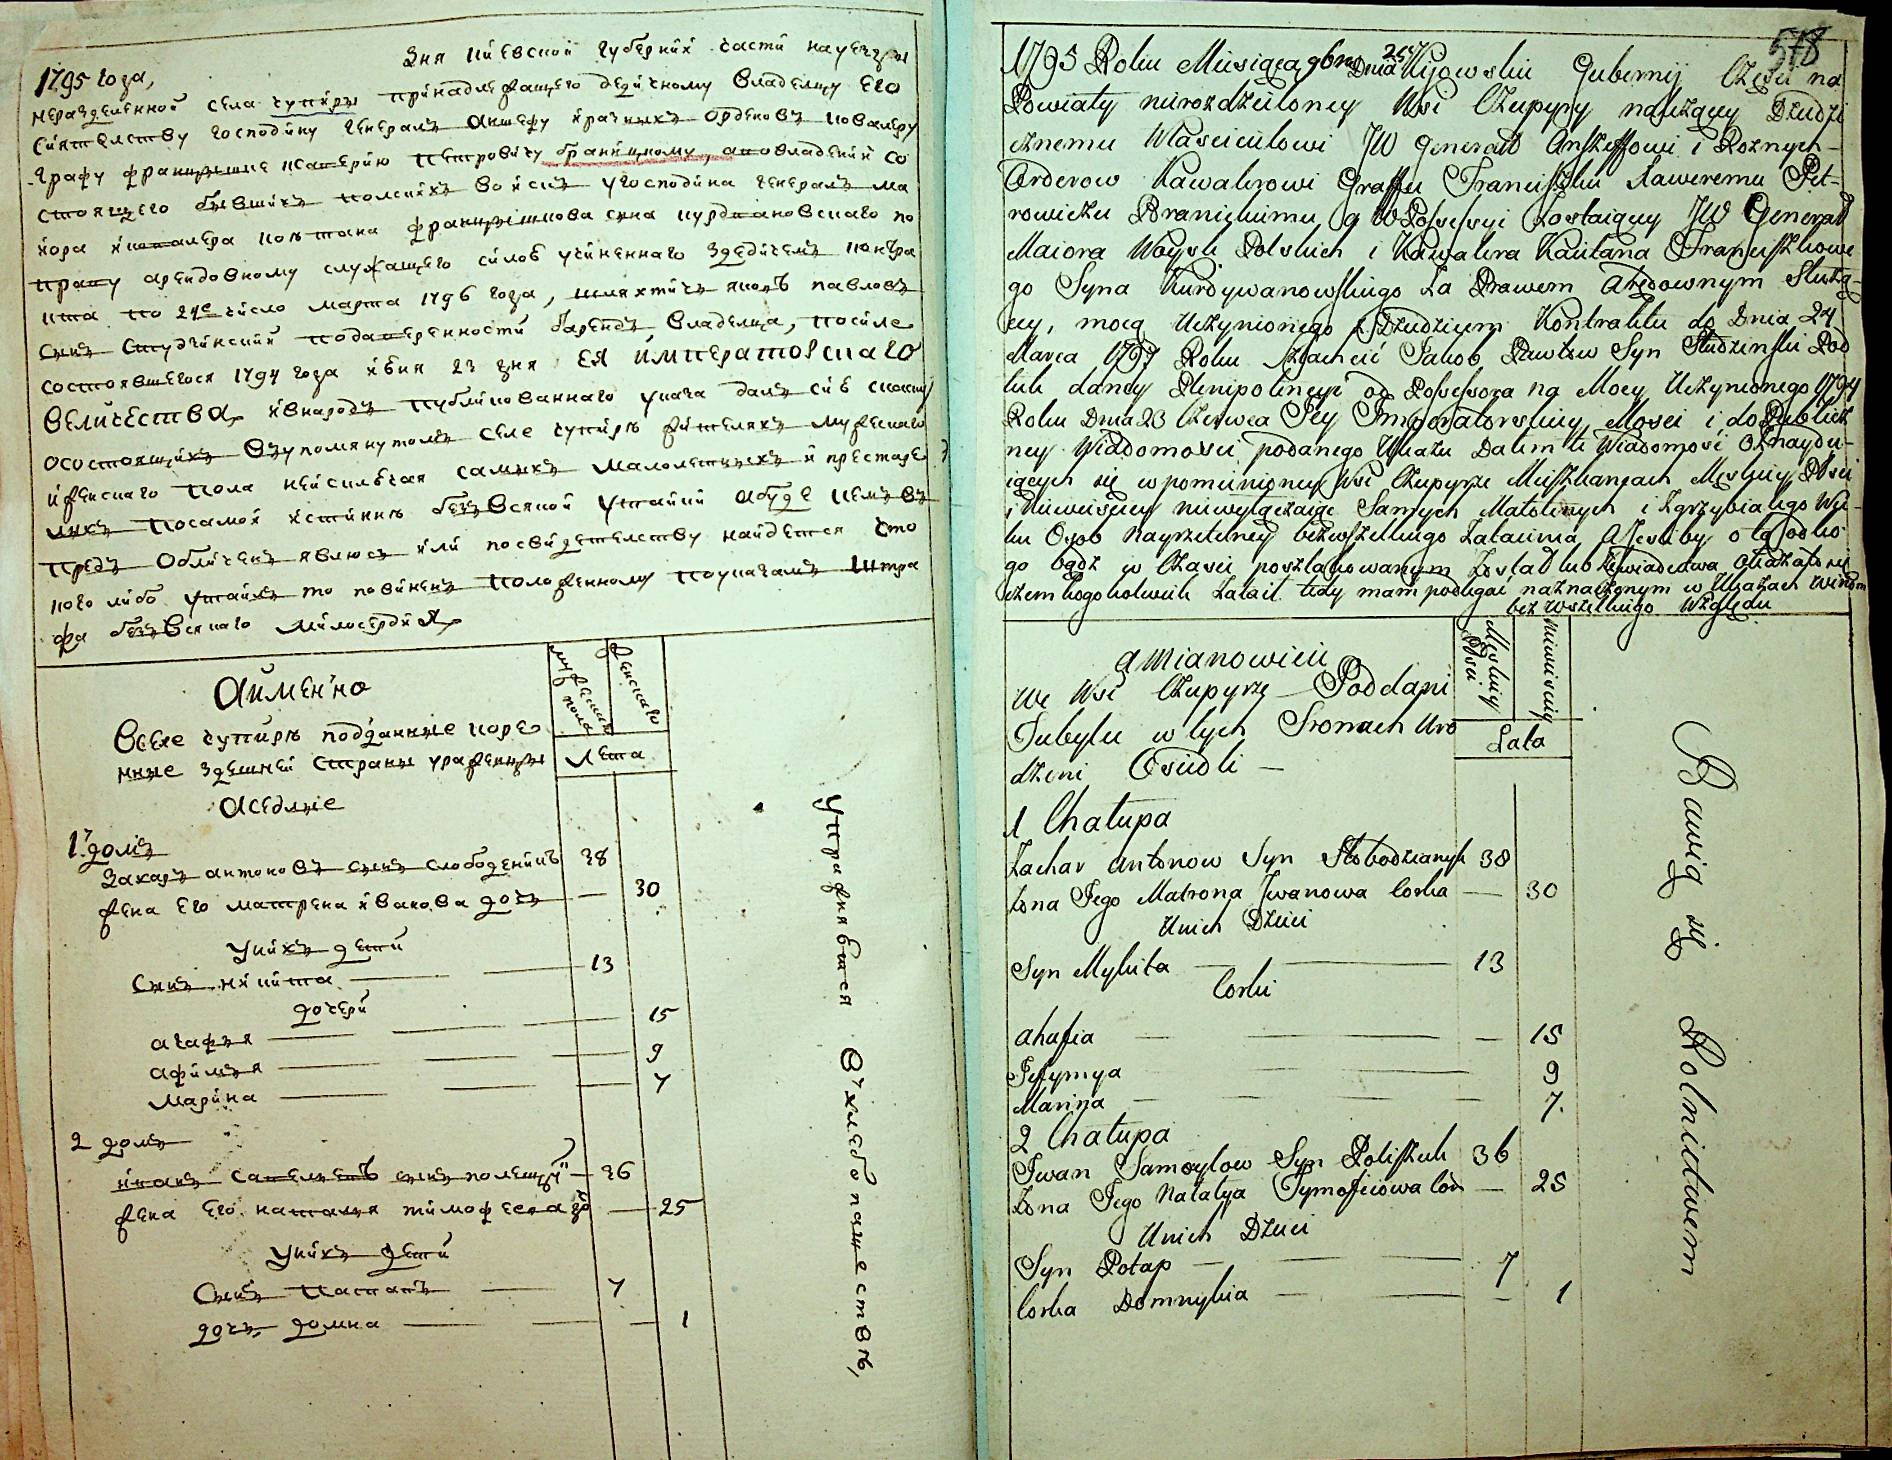 1795 года, дня киевской губернии части науезды
неразделенной села чупиры принадлежащего дедичному владелцу его
сиятелству господину генералъ аншефу иразныхъ орденовъ ковалеру
графу францишке ксаверию петровичу браницкому, авовладении со
стоящего бывшихъ полскихъ воискъ угосподина генералъ ма
иора икавалера каетана францишкова сина курдвановскаго по
праву арендовному служащего силою учиненнаго здедичемъ контра
кта по 24е число марта 1796 года, шляхтичъ яковъ павловъ
синъ студзинский подоверенности
состоявшегося 1794 года июня 23 дня ея императорскаго
величества, ивнародъ публикованнаго указа даю сию скаску
осостоящихъ вупомянутомъ селе чупире жителяхъ мужескаго
иженскаго пола неисключая самыхъ малолетныхъ и престаре
лыхъ посамой истинне безъ всякой утайки абуде кемъ въ
предь обличенъ явлюсь или посвидетелству найдется что
кого либо утаилъ то повиненъ положенному поуказамъ штра
фу безъ всякаго милосердия
аименно
Вселе чупире подданные коре
нние здешней страны ураженцы
аседлие
мужеска пола
женскаго
лета
1. домъ
Захаръ антоновъ синъ слободеникъ 38
жена его матрена иванова дочъ — 30
унихъ дети
Синъ никита — 13
дочери
агафия — 15
афимия — 9
марина — 7
2 домъ
иванъ самоиловъ синъ полещукъ — 36
жена его наталия тимофеева до — 25
унихъ дети
Синъ потапъ — 7
дочъ домна — 1
упражняются Вхлебопашестве,
578
1795 Roku Miesiąca 9bra Dnia 25 Kijowskiu Gubernij Części na
Powiaty nierozdzieloney Wsi Czupyry należący Dziedzi
cznemu Włascicielowi JW Generał Anszeffowi i Rożnych
Orderow Kawalerowi Graffu Franciszku Xaweremu Pet-
rowiczu Branickiemu a W Possessyi Zostaiący JW Generał
Maiora Woysk Polskich i Kawalera Kaietana Franciszkowe
go Syna Kurdywanowskiego Za Prawem Arędownym Służą-
cy, mocą Uczynionego z Dziedzicem Kontraktu do Dnia 24
Marca 1797 Roku Szlachcic Jakob Pawłow Syn Studzinski Pod
lub daney Plenipotencyi od Possessora na Mocy Uczynionego 1794
Roku Dnia 23 Czerwca Jey Imperatorskiey Mosci i do Publicz
ney Wiadomosci podanego Ukazu Daiem tę Wiadomość o Znaydu-
iących się wpomienioney Wsi Czupyrze Mieszkańcach Męskiey Płci
i Niewiesciey niewyłączaiąc Samych Małoletnych i Zgrzybiałego Wie-
ku Osob Nayrzetelney bezwszelkiego Zataienia, A Jezeliby o tego Co
go bądź w Czasie poszlakowanym Został lub Zewiadectwa okazało się
czem kogokolwiek Zataił tedy mam podlegać naznaczonym w Ukazach Winom
bez wszelkiego Względu
a mianowicie
We Wsi Czupyrze Poddani
Tubylce w tych Stronach Uro
dzeni Osiedli —
Męskiey Płci
Niewiesciey
Lata
1 Chałupa
Zachar Antonow Syn Słobodzianyk 38
Żona Jego Matrona Jwanowa Corka — 30
Unich Dzieci
Syn Mykita — 13
Corki
Ahafia — 15
Jefymya — 9
Maryna — 7.
2 Chałupa
Jwan Samoyłow Syn Poliszuk 36
Żona Jego Natalya Tymofieiowa Cór — 25
Unich Dzieci
Syn Potap — 7
Corka Domnykia — 1
Bawią się Rolnictwem